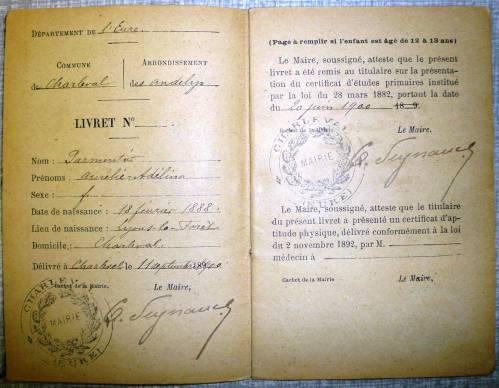 DÉPARTEMENT DE l'Eure
COMMUNE
de Charleval
ARRONDISSEMENT
des andelys
LIVRET No
Nom : Parmentier
Prénoms : Aurélie Adélina
Sexe : f
Date de naissance : 18 février 1888
Lieu de naissance : Lyons-la-Forêt
Domicile : Charleval
Délivré à Charleval le 11 septembre 1900
Cachet de la Mairie.
Le Maire,
CHARLEVAL
MAIRIE
(EURE)
(Page à remplir si l'enfant est âgé de 12 à 13 ans)
Le Maire, soussigné, atteste que le présent
livret a été remis au titulaire sur la présenta-
tion du certificat d'études primaires institué
par la loi du 28 mars 1882, portant la date
du 20 juin 1900 18 9
Cachet de la Mairie.
Le Maire,
CHARLEVAL
MAIRIE
(EURE)
Le Maire, soussigné, atteste que le titulaire
du présent livret a présenté un certificat d'ap-
titude physique, délivré conformément à la loi
du 2 novembre 1892, par M.
médecin à
Cachet de la Mairie
Le Maire,